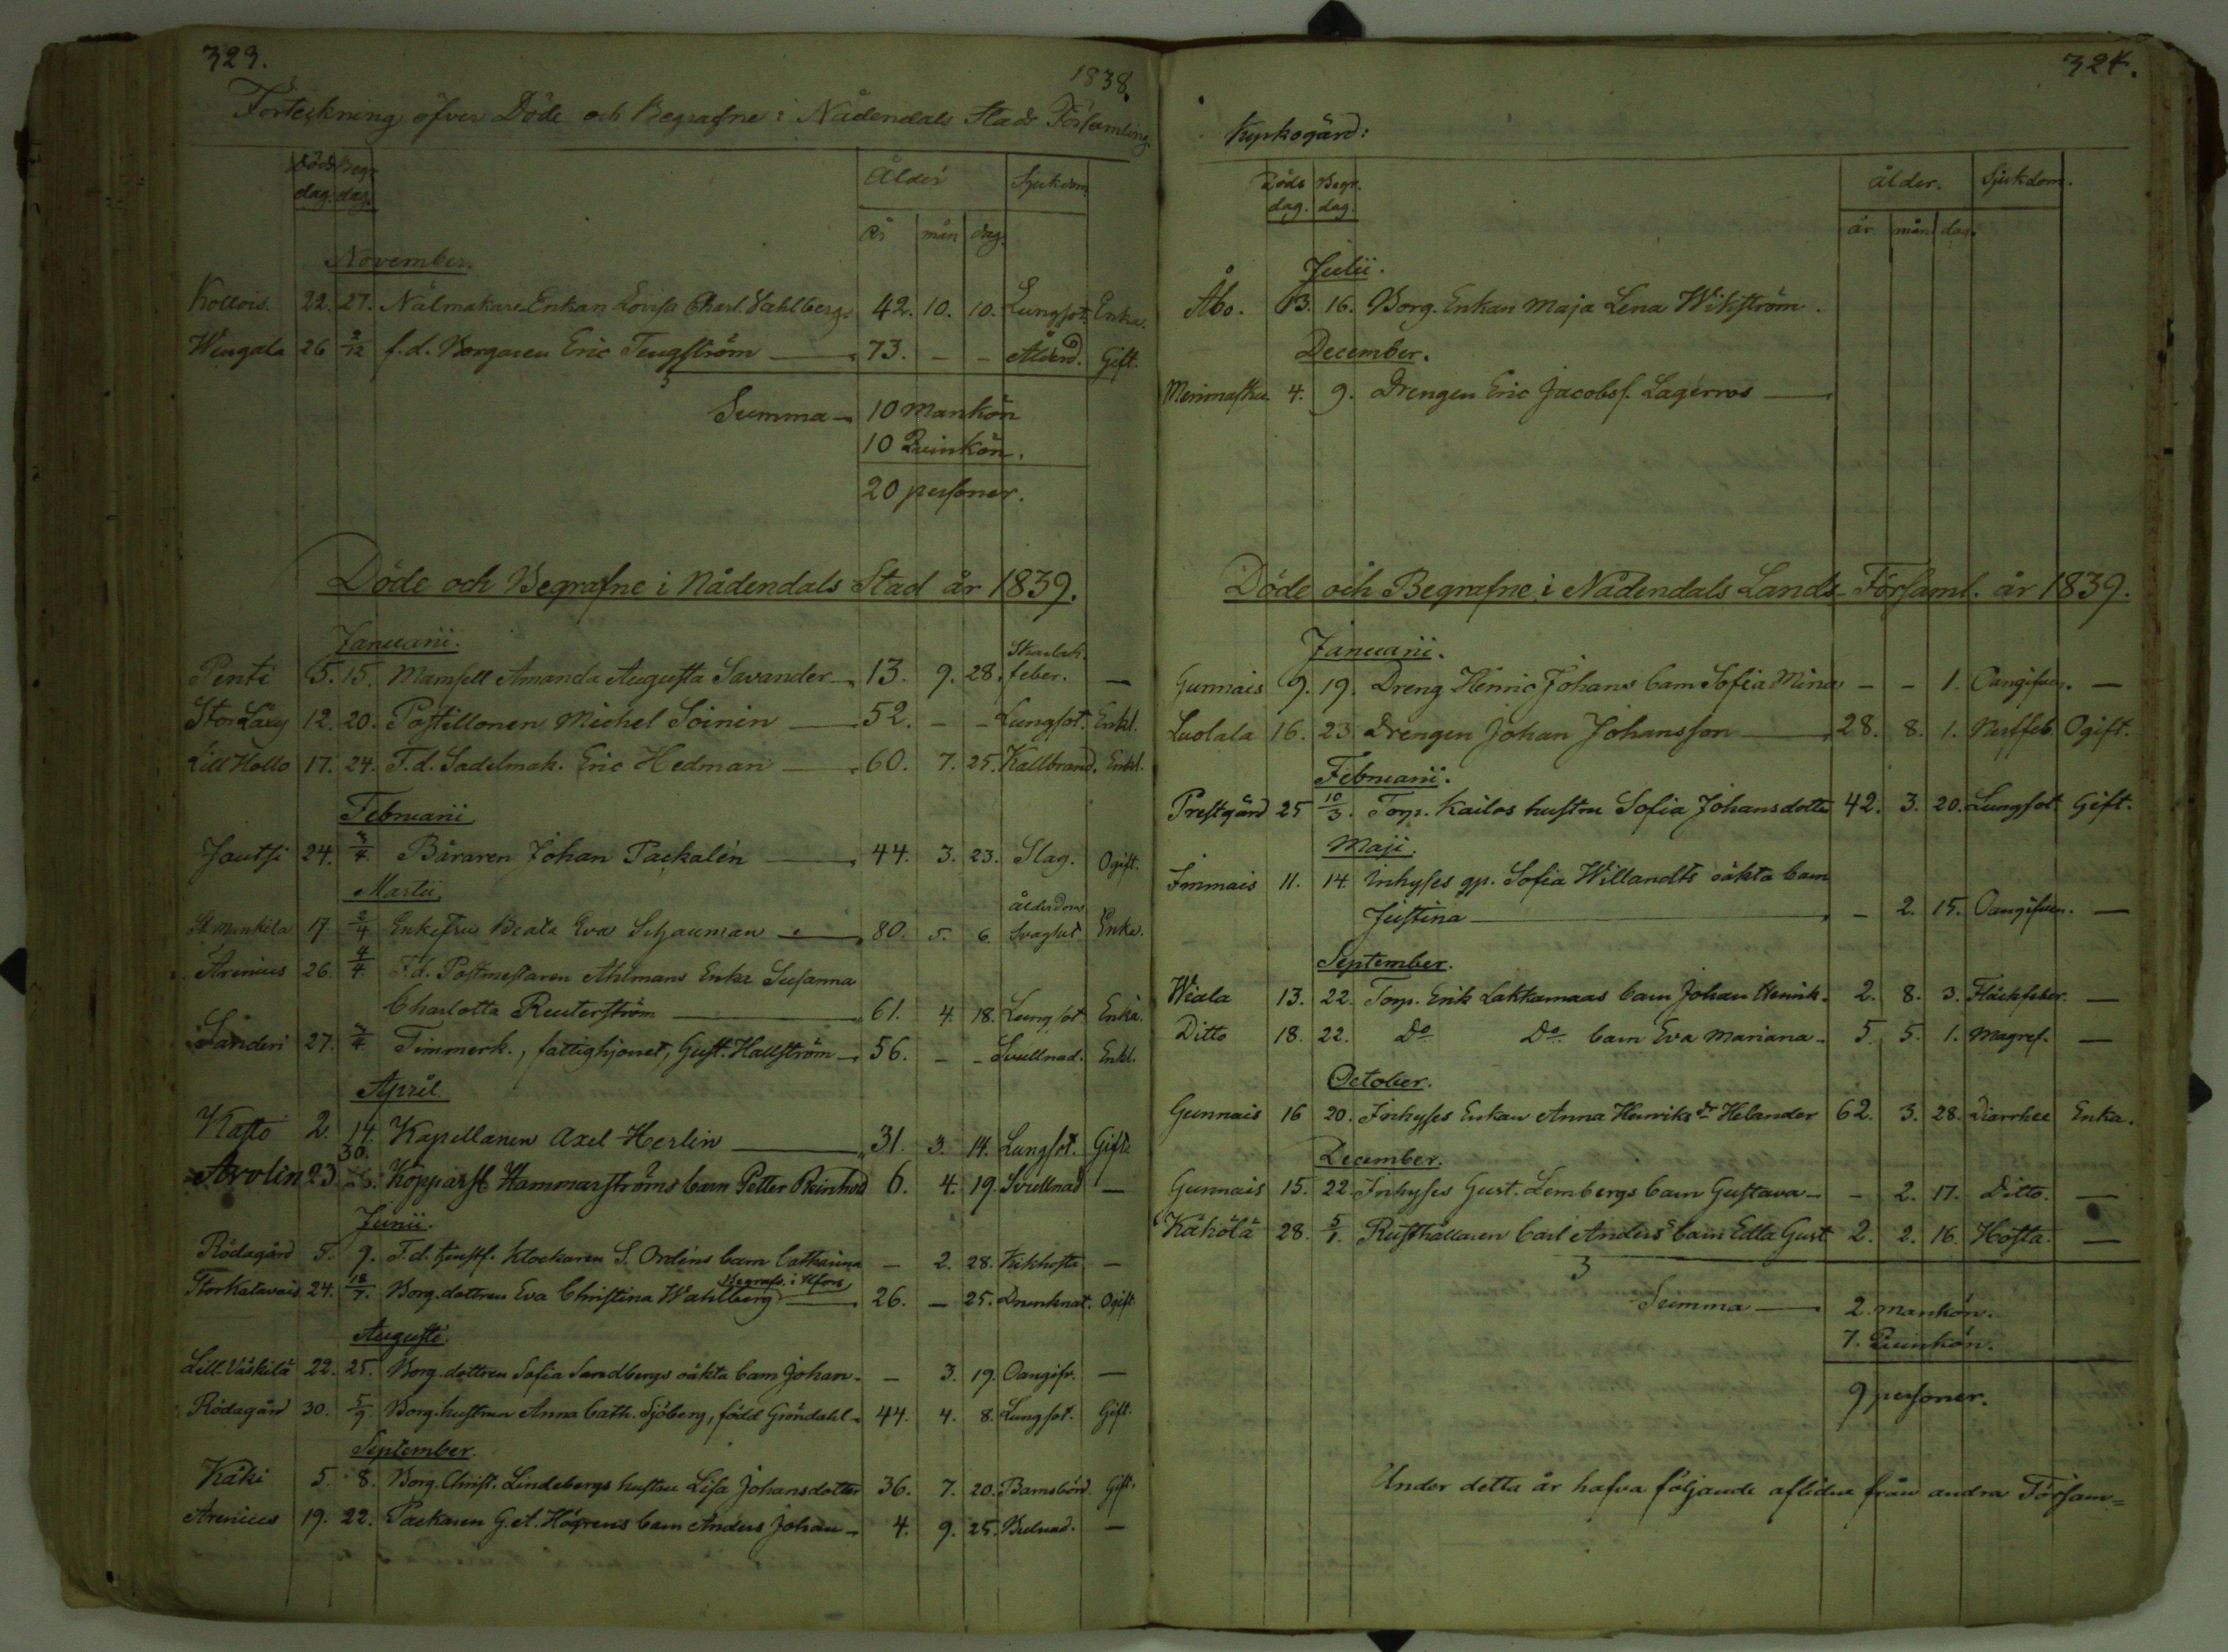 323.
1838.
Förteckning öfver Döde och Begrafne i Nådendals Stads Församling
Döds dag. Begr. dag. Ålder Sjukdom.
År mån dag.
November.
Kollois. 22. 27. Nålmakare Enkan Lovisa Charl. Vahlberg. 42. 10. 10. Lungsot. Enka.
Wingala 26 2/12 f.d. Borgaren Eric Tengström 73. - - Ålderd. Gift.
Summa - 10 Mankön
10 Quinkön.
20 personer.
Döde och Begrafne i Nådendals Stad år 1839.
Januarii.
Penti 5. 15. Mamsell Amanda Augusta Savander 13. 9. 28. Skarlak. feber. —
Stor Lavy 12. 20. Postillonen Michel Soinin 52. - - Lungsot. Enkl.
Lill Kollo 17. 24. F.d. Sadelmak. Eric Hedman 60. 7. 25. Kallbrand. Enkl.
Februarii
Jautsi 24. 3/4. Bäraren Johan Packalén 44. 3. 23. Slag. Ogift.
Martii.
St. Munkila 17. 2/4 Enkefru Beata Eva Schauman 80. 5. 6. Ålderdoms Svaghet Enka.
Arenius 26. 4/4. F.d. Postmestaren Ahlmans Enka Susanna
Charlotta Reuterström 61. 4. 18. Lungsot Enka.
Sanderi 27. 3/4 Timmerk., fattighjonet, Gust. Hallström 56. - - Svullnad. Enkl.
April.
Kasto 2. 14. Kapellanen Axel Herlin 31. 3. 14. Lungsot. Gift.
Avolin 23 30. Kopparsl Hammarströms barn Petter Reinhold 6. 4. 19. Svullnad —
Junii.
Rödagård 5. 9. F.d. tjenstf. Klockaren S. Ordéns barn Catharina - 2. 28. Kikhosta —
Stor Katavais 24. 18/7. Borg. dottren Eva Christina Wahlberg Begrafv. i Hfors 26. — 25. Drunknat. Ogift.
Augusti.
Lill. Väskilä 22. 25. Borg. dottren Sofia Sandbergs oäkta barn Johan - - 3. 19. Oangifv. —
Rödagård 30. 5/9. Borg. hustrun Anna Cath. Sjöberg, född Gröndahl 44. 4. 8. Lungsot. Gift.
September.
Käki 5. 8. Borg. Christ. Lindebergs hustru Lisa Johansdotter 36. 7. 20. Barnsbörd. Gift.
Arenius 19. 22. Packaren G. A. Högrens barn Anders Johan 4. 9. 25. Bulnad. —
324.
Kyrkogård:
Döds dag. Begr. dag. ålder. Sjukdom.
år mån dag.
Julii.
Åbo. 13. 16. Borg. Enkan Maja Lena Wikström.
December.
Merimasku 4. 9. Drengen Eric Jacobss. Lagerros
Döde och Begrafne i Nådendals Lands Församl. år 1839.
Januarii.
Gunnais 9. 19. Dreng Henric Johans barn Sofia Mina - - 1. Oangifven. —
Luolala 16. 23 Drengen Johan Johansson 28. 8. 1. Nerffeb. Ogift.
Februarii.
Prestgård 25 10/3. Torp. Kailos hustru Sofia Johansdotter 42. 3. 20. Lungsot Gift.
Maji.
Immais 11. 14 Inhyses qp. Sofia Willandts oäkta barn
Justina - 2. 15. Oangifven. —
September.
Wiala 13. 22. Torp. Erik Lakkamaas barn Johan Henrik. 2. 8. 3. Fläckfeber. —
Ditto 18. 22. Do Do barn Eva Mariana 5. 5. 1. Magref. —
October.
Gunnais 16 20. Inhyses Enkan Anna Henriks dr Helander 62. 3. 28. Diarrhee Enka.
December.
Gunnais 15. 22 Inhyses Gust. Lembergs barn Gustava - - 2. 17. Ditto. —
Käkölä 28. 5/1. Rusthållaren Carl Anders s barn Edla Gust 2. 2. 16. Hosta. —
Summa 2. mankön.
7. Quinkön.
9 personer.
Under detta år hafva följande aflidne från andra Försam=